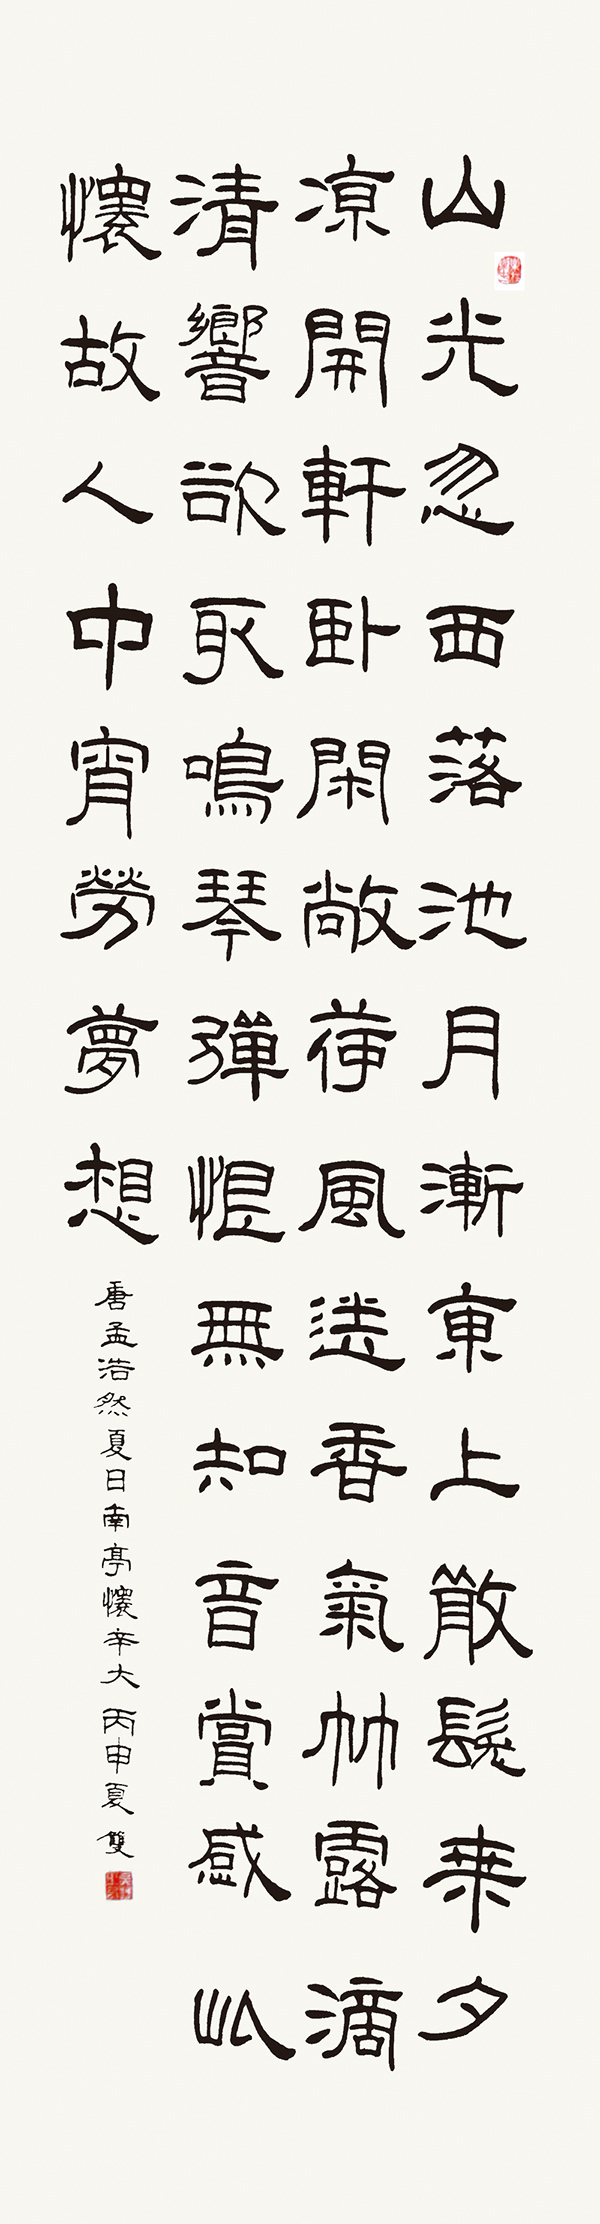 山光忽西落池月漸東上散髮乘夕
凉開軒卧閑敞荷風送香氣竹露滴
清響欲取鳴琴彈恨無知音賞感此
懷故人中宵勞夢想
唐孟浩然夏日南亭懷辛大丙申夏雙